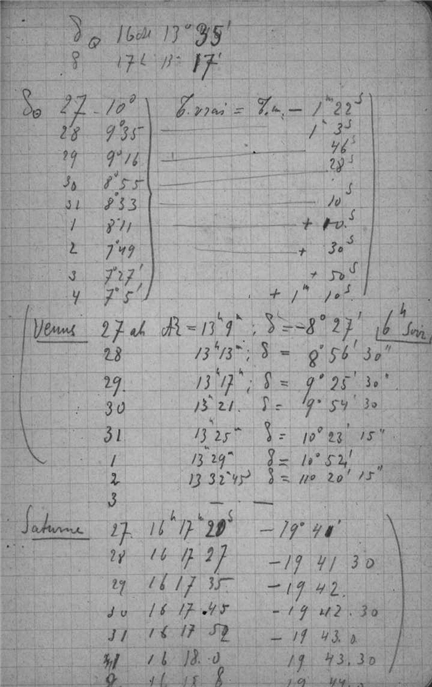 δ☉ 16 août 13° 35'
8 17h 13° 17'
δ☉ 27 10° T. vrai = T.m. – 1ᵐ 22ˢ
28 9°35 1ᵐ 3ˢ
29 9°16 46ˢ
30 8°55 28ˢ
31 8°33 10ˢ
1 8°11 + 10ˢ
2 7°49 + 30ˢ
3 7°27' + 50ˢ
4 7°5' + 1ᵐ 10ˢ
Venus 27 août AR = 13ʰ 9ᵐ ; δ = –8° 27' 6ʰ Soir
28 13ʰ 13ᵐ ; δ = 8° 56' 30"
29. 13ʰ 17ᵐ ; δ = 9° 25' 30"
30 13ʰ 21. δ = 9° 54' 30
31 13ʰ 25ᵐ δ = 10° 23' 15"
1 13ʰ 29ᵐ δ = 10° 52'
2 13 32ᵐ 45ˢ δ = 11° 20' 15"
3 — —
Saturne 27. 16ʰ 17ᵐ 20ˢ – 19° 41'
28 16 17 27 – 19 41 30
29 16 17 35 – 19 42.
30 16 17 45 – 19 42. 30
31 16 17 52 – 19 43. 0
1 16 18. 0 19 43. 30
2 16 18 8 19 44. 0